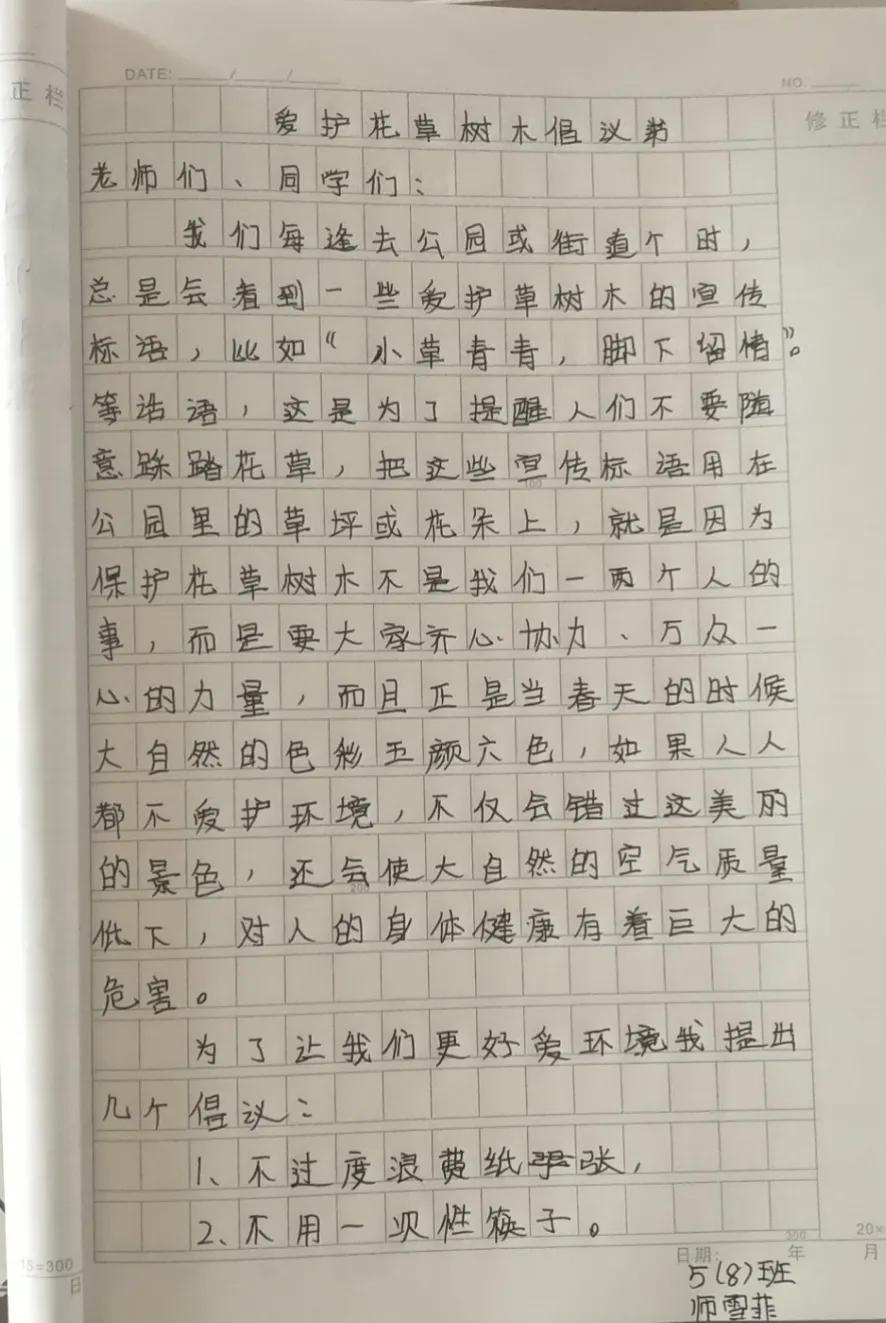 正 栏
DATE: ____/____/____
NO. ____
修 正 栏
爱护花草树木倡议书
老师们、同学们：
我们每逢去公园或街道个时，
总是会看到一些爱护草树木的宣传
标语，比如“小草青青，脚下留情”。
等话语，这是为了提醒人们不要随
意踩踏花草，把这些宣传标语用在
100
公园里的草坪或花朵上，就是因为
保护花草树木不是我们一两个人的
事，而是要大家齐心协力、万众一
心的力量，而且正是当春天的时候
大自然的色彩五颜六色，如果人人
都不爱护环境，不仅会错过这美丽
的景色，还会使大自然的空气质量
200
低下，对人的身体健康有着巨大的
危害。
为了让我们更好爱环境我提出
几个倡议：
1、不过度浪费纸张，
2、不用一次性筷子。
300
20×
15=300
日
日期： 年 月
5(8)班
师雪菲